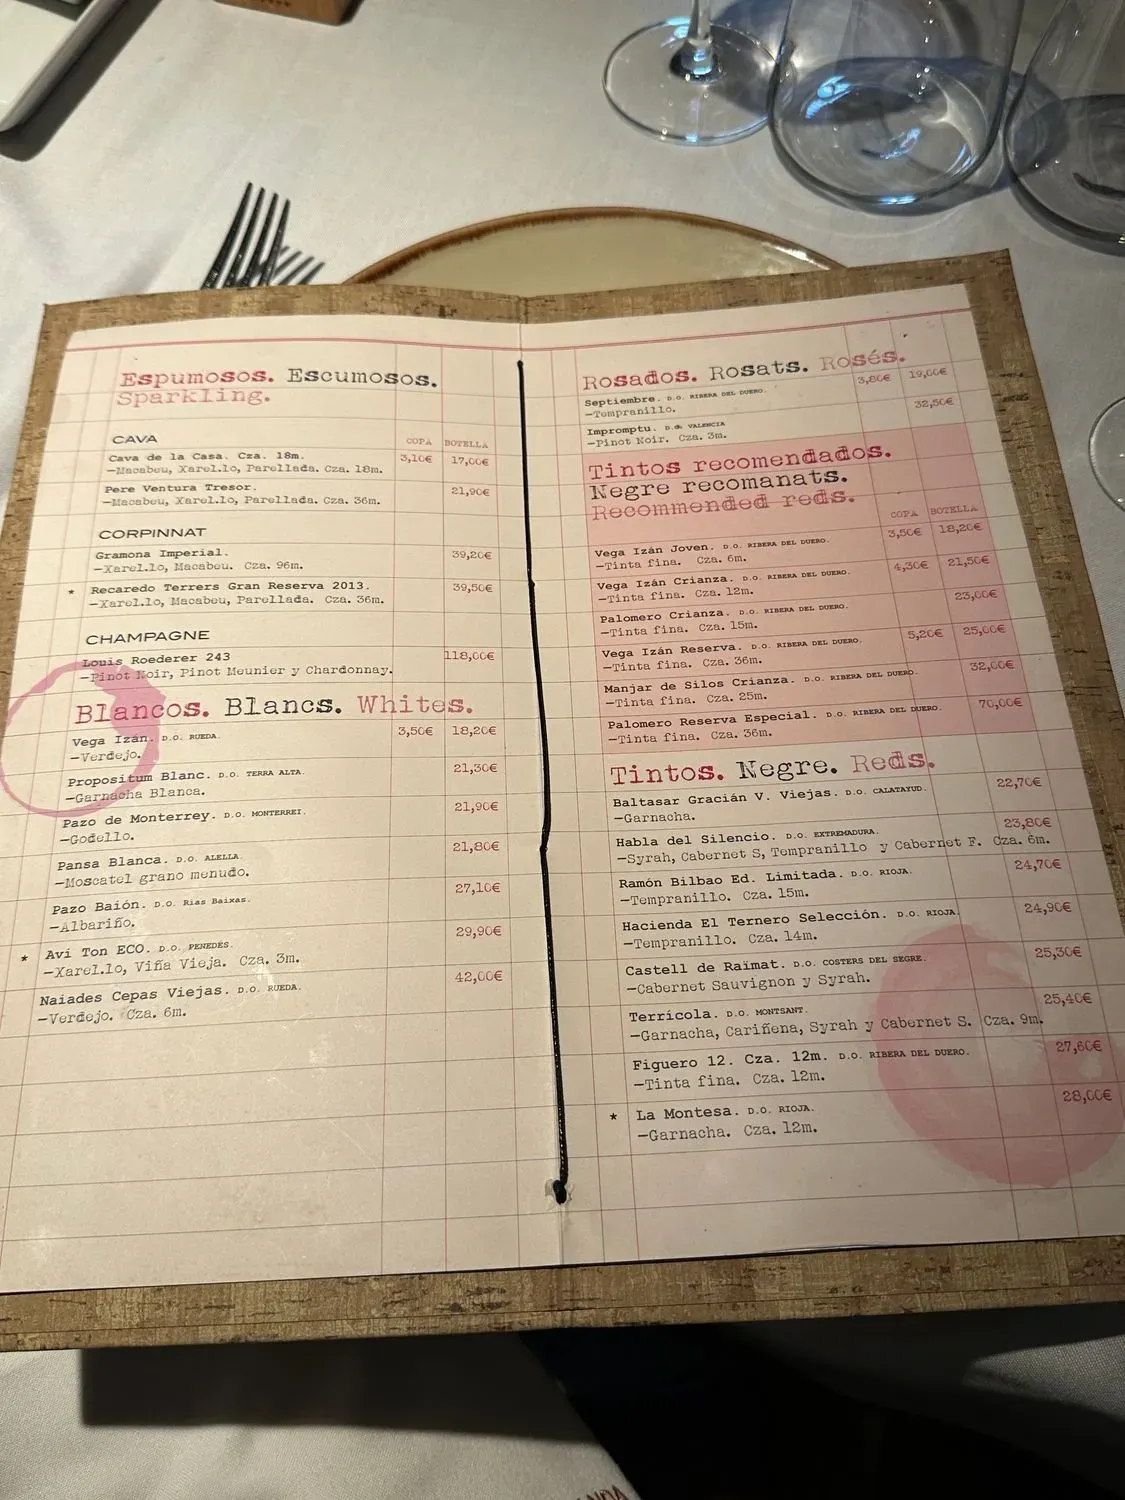 Espumosos. Escumosos.
Sparkling.
CAVA
COPA BOTELLA
Cava de la Casa. Cza. 18m. 3,10€ 17,00€
—Macabeu, Xarel.lo, Parellada. Cza. 18m.
Pere Ventura Tresor. 21,90€
—Macabeu, Xarel.lo, Parellada. Cza. 36m.
CORPINNAT
Gramona Imperial. 39,20€
—Xarel.lo, Macabeu. Cza. 96m.
* Recaredo Terrers Gran Reserva 2013. 39,50€
—Xarel.lo, Macabeu, Parellada. Cza. 36m.
CHAMPAGNE
Louis Roederer 243 118,00€
—Pinot Noir, Pinot Meunier y Chardonnay.
Blancos. Blancs. Whites.
Vega Izán. D.O. RUEDA. 3,50€ 18,20€
—Verdejo.
Propositum Blanc. D.O. TERRA ALTA. 21,30€
—Garnacha Blanca.
Pazo de Monterrey. D.O. MONTERREI. 21,90€
—Godello.
Pansa Blanca. D.O. ALELLA. 21,80€
—Moscatel grano menudo.
Pazo Baión. D.O. Rias Baixas. 27,10€
—Albariño.
* Aví Ton ECO. D.O. PENEDÉS. 29,90€
—Xarel.lo, Viña Vieja. Cza. 3m.
Naiades Cepas Viejas. D.O. RUEDA. 42,00€
—Verdejo. Cza. 6m.
Rosados. Rosats. Rosés.
Septiembre. D.O. RIBERA DEL DUERO. 3,80€ 19,00€
—Tempranillo.
Impromptu. D.O. VALENCIA 32,50€
—Pinot Noir. Cza. 3m.
Tintos recomendados.
Negre recomanats.
Recommended reds.
COPA BOTELLA
Vega Izán Joven. D.O. RIBERA DEL DUERO. 3,50€ 18,20€
—Tinta fina. Cza. 6m.
Vega Izán Crianza. D.O. RIBERA DEL DUERO. 4,30€ 21,50€
—Tinta fina. Cza. 12m.
Palomero Crianza. D.O. RIBERA DEL DUERO. 23,00€
—Tinta fina. Cza. 15m.
Vega Izán Reserva. D.O. RIBERA DEL DUERO. 5,20€ 25,00€
—Tinta fina. Cza. 36m.
Manjar de Silos Crianza. D.O. RIBERA DEL DUERO. 32,00€
—Tinta fina. Cza. 25m.
Palomero Reserva Especial. D.O. RIBERA DEL DUERO. 70,00€
—Tinta fina. Cza. 36m.
Tintos. Negre. Reds.
Baltasar Gracián V. Viejas. D.O. CALATAYUD. 22,70€
—Garnacha.
Habla del Silencio. D.O. EXTREMADURA. 23,80€
—Syrah, Cabernet S, Tempranillo y Cabernet F. Cza. 6m.
Ramón Bilbao Ed. Limitada. D.O. RIOJA. 24,70€
—Tempranillo. Cza. 15m.
Hacienda El Ternero Selección. D.O. RIOJA. 24,90€
—Tempranillo. Cza. 14m.
Castell de Raïmat. D.O. COSTERS DEL SEGRE. 25,30€
—Cabernet Sauvignon y Syrah.
Terrícola. D.O. MONTSANT. 25,40€
—Garnacha, Cariñena, Syrah y Cabernet S. Cza. 9m.
Figuero 12. Cza. 12m. D.O. RIBERA DEL DUERO. 27,60€
—Tinta fina. Cza. 12m.
* La Montesa. D.O. RIOJA. 28,00€
—Garnacha. Cza. 12m.